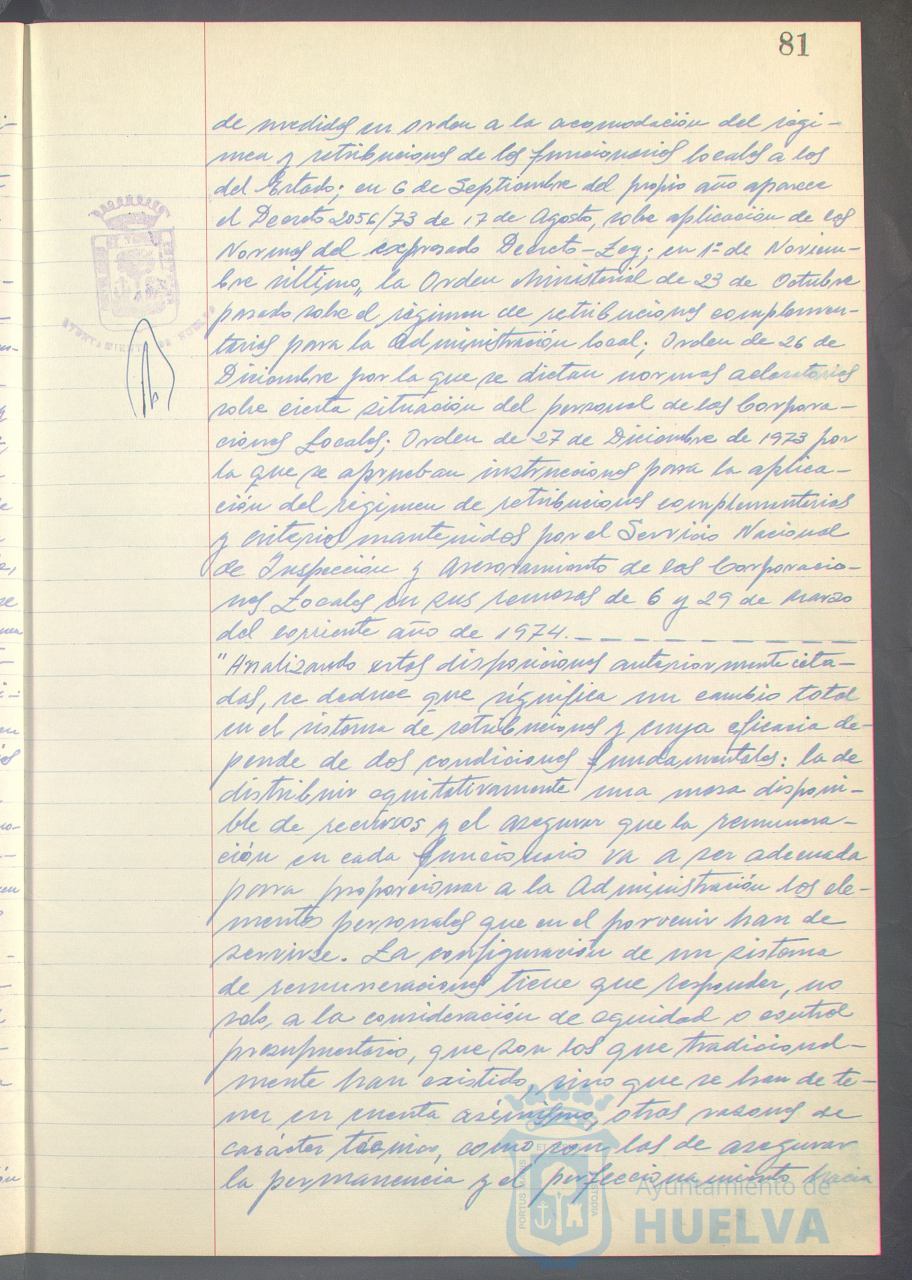 81
de medidas en orden a la acomodación del régi-
men y retribuciones de los funcionarios locales a los
del Estado; en 6 de Septiembre del propio año aparece
el Decreto 2056/73 de 17 de Agosto, sobre aplicación de las
Normas del expresado Decreto-Ley; en 1º de Noviem-
bre último, la Orden Ministerial de 23 de Octubre
pasado sobre el régimen de retribuciones complemen-
tarias para la Administración local; Orden de 26 de
Diciembre por la que se dictan normas aclaratorias
sobre cierta situación del personal de las Corpora-
ciones Locales; Orden de 27 de Diciembre de 1973 por
la que se aprueban instrucciones para la aplica-
ción del régimen de retribuciones complementarias
y criterios mantenidos por el Servicio Nacional
de Inspección y Asesoramiento de las Corporacio-
nes Locales en sus remesas de 6 y 29 de Marzo
del corriente año de 1974.
"Analizando estas disposiciones anteriormente cita-
das, se deduce que significa un cambio total
en el sistema de retribuciones y cuya eficacia de-
pende de dos condiciones fundamentales: la de
distribuir equitativamente una masa disponi-
ble de recursos y el asegurar que la remunera-
ción en cada funcionario va a ser adecuada
para proporcionar a la Administración los ele-
mentos personales que en el porvenir han de
servirse. La configuración de un sistema
de remuneraciones tiene que responder, no
solo, a la consideración de equidad o control
presupuestario, que son los que tradicional-
mente han existido, sino que se han de te-
ner en cuenta asímismo, otras razones de
carácter técnico, como son las de asegurar
la permanencia y el perfeccionamiento hacia
AYUNTAMIENTO DE HUELVA
PORTUS MARIS ET TERRAE CUSTODIA
Ayuntamiento de
HUELVA